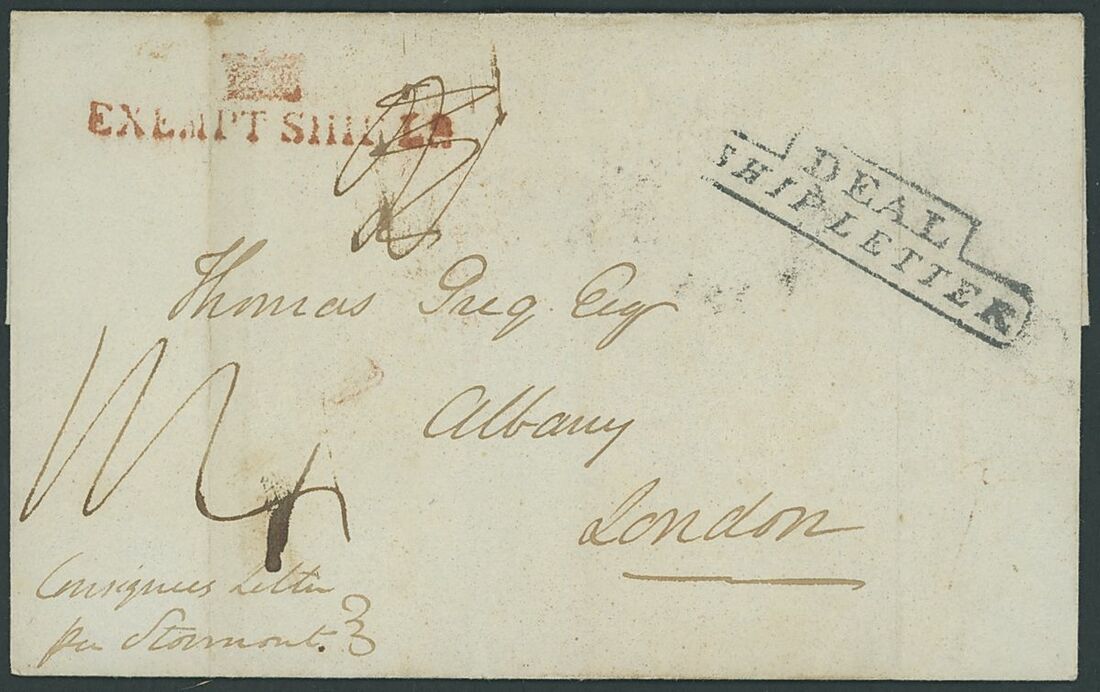 EXEMPT SHIP
DEAL
SHIP LETTER
Thomas Greg Esq
Albany
London
Consignees Letter
per Stormont.